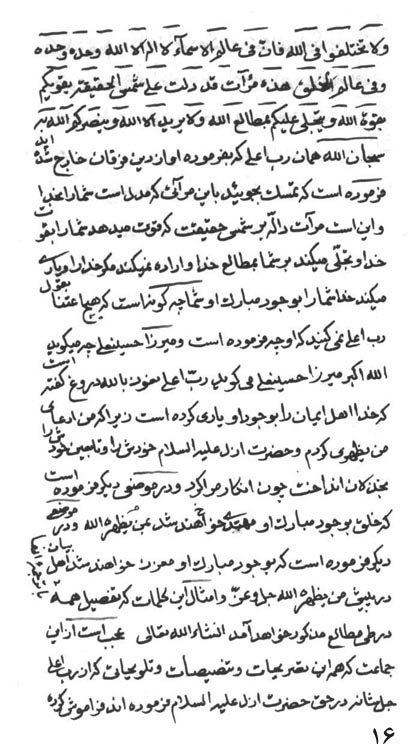 ولا تختلفوا فی الله فان فی عالم الاسمآء لا اله الا الله وحده وحده
وفی عالم الخلق هذه مرآت قد دلت علی شمس الحقیقة یقویکم
بقوة الله و یتجلی علیکم بمطالع الله ولا یرید الا الله و ینصرکم الله به
سبحان الله همان رب اعلی که بفرموده او از دین فرقان خارج شده اید
فرموده است که تمسک بجوئید باین مرآتی که مدل است شما را بخدا
و این است مرآت داله بر شمس حقیقت که قوت میدهد شما را بقوت
خدا و تجلی میکند بر شما بمطالع خدا و اراده نمیکند مگر خدا را و یاری
میکند خدا شما را بوجود مبارک او شما چه گونه است که هیچ اعتنا بقول
رب اعلی نمی کنید که او چه فرموده است و میرزا حسینعلی چه میگوید
الله اکبر میرزا حسینعلی می گوید رب اعلی نعوذ بالله دروغ گفته است
که خدا اهل ایمان را بوجود او یاری کرده است زیرا که من ادعای
من یظهری کردم و حضرت ازل علیه السلام خودش را و تابعین خودش را
بخذلان انداخت چون انکار مرا کرد و در موضعی دیگر فرموده است
که خلق بوجود مبارک او مهتدی خواهند شد بمن یظهره الله و در موضع
دیگر فرموده است که بوجود مبارک او معزز خواهند شد اهل بیان
در پیش من یظهره الله جل و عز و امثال این کلمات که تفصیل همه
در طی مطالع مذکور خواهد آمد انشاء الله تعالی عجب است از این
جماعت که همه این تصریحات و تنصیصات و تلویحاتی که از رب اعلی
جل شانه در حق حضرت ازل علیه السلام فرموده اند فراموش کرده
۱۶